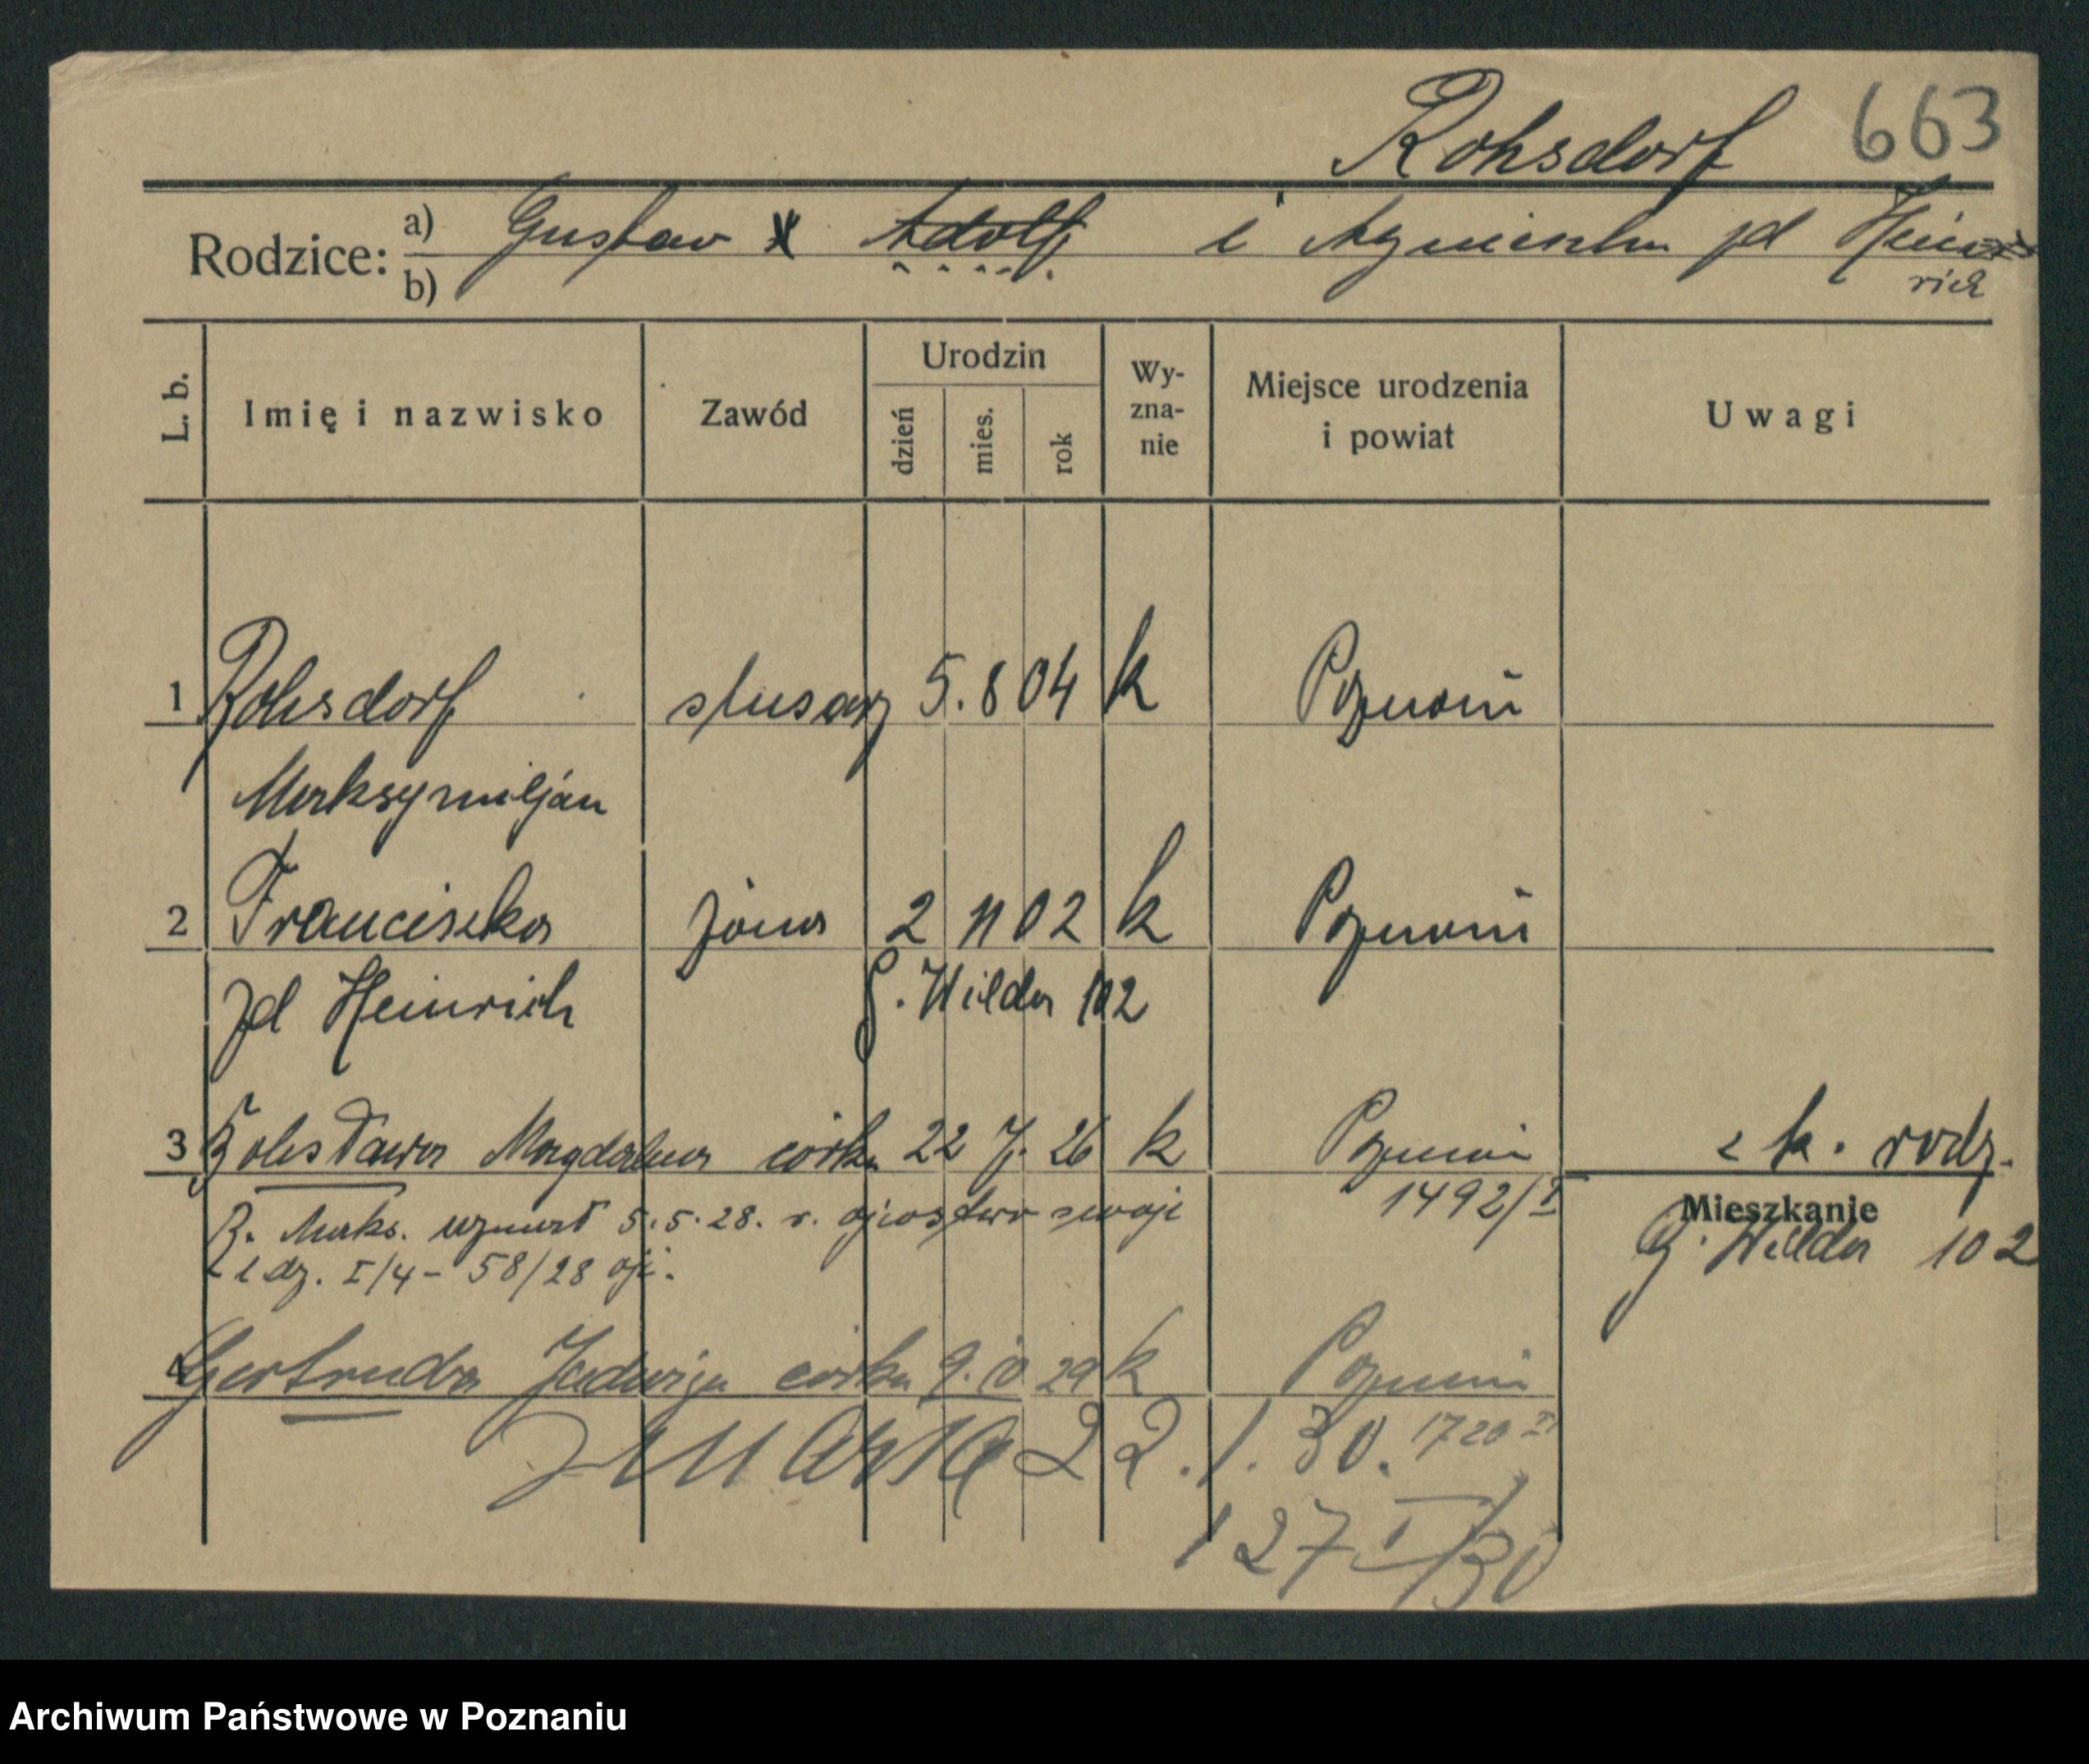 Rohsdorf 663
Rodzice: a) b) Gustaw Adolf i Agnieszka zd Hein
rich
L. b. Imię i nazwisko Zawód Urodzin dzień mies. rok Wy-zna-nie Miejsce urodzenia i powiat Uwagi
1 Rohsdorf ślusarz 5. 8 04 k Poznań
Maksymiljan
2 Franciszka żona 2 11 02 k Poznań
zd Heinrich G. Wilda 102
3 Bolesława Magdalena córka 22 7. 26 k Poznań z k. rodz.
1492/I Mieszkanie
R. Maks. uznał 5.5.28. r. ojcostwo swoje G. Wilda 102
L dz. I/4 - 58/28
4 Gertruda Jadwiga córka 9. 10 29 k Poznań
zmarła 22. 1. 30. 1720 I
127 I/30
Archiwum Państwowe w Poznaniu